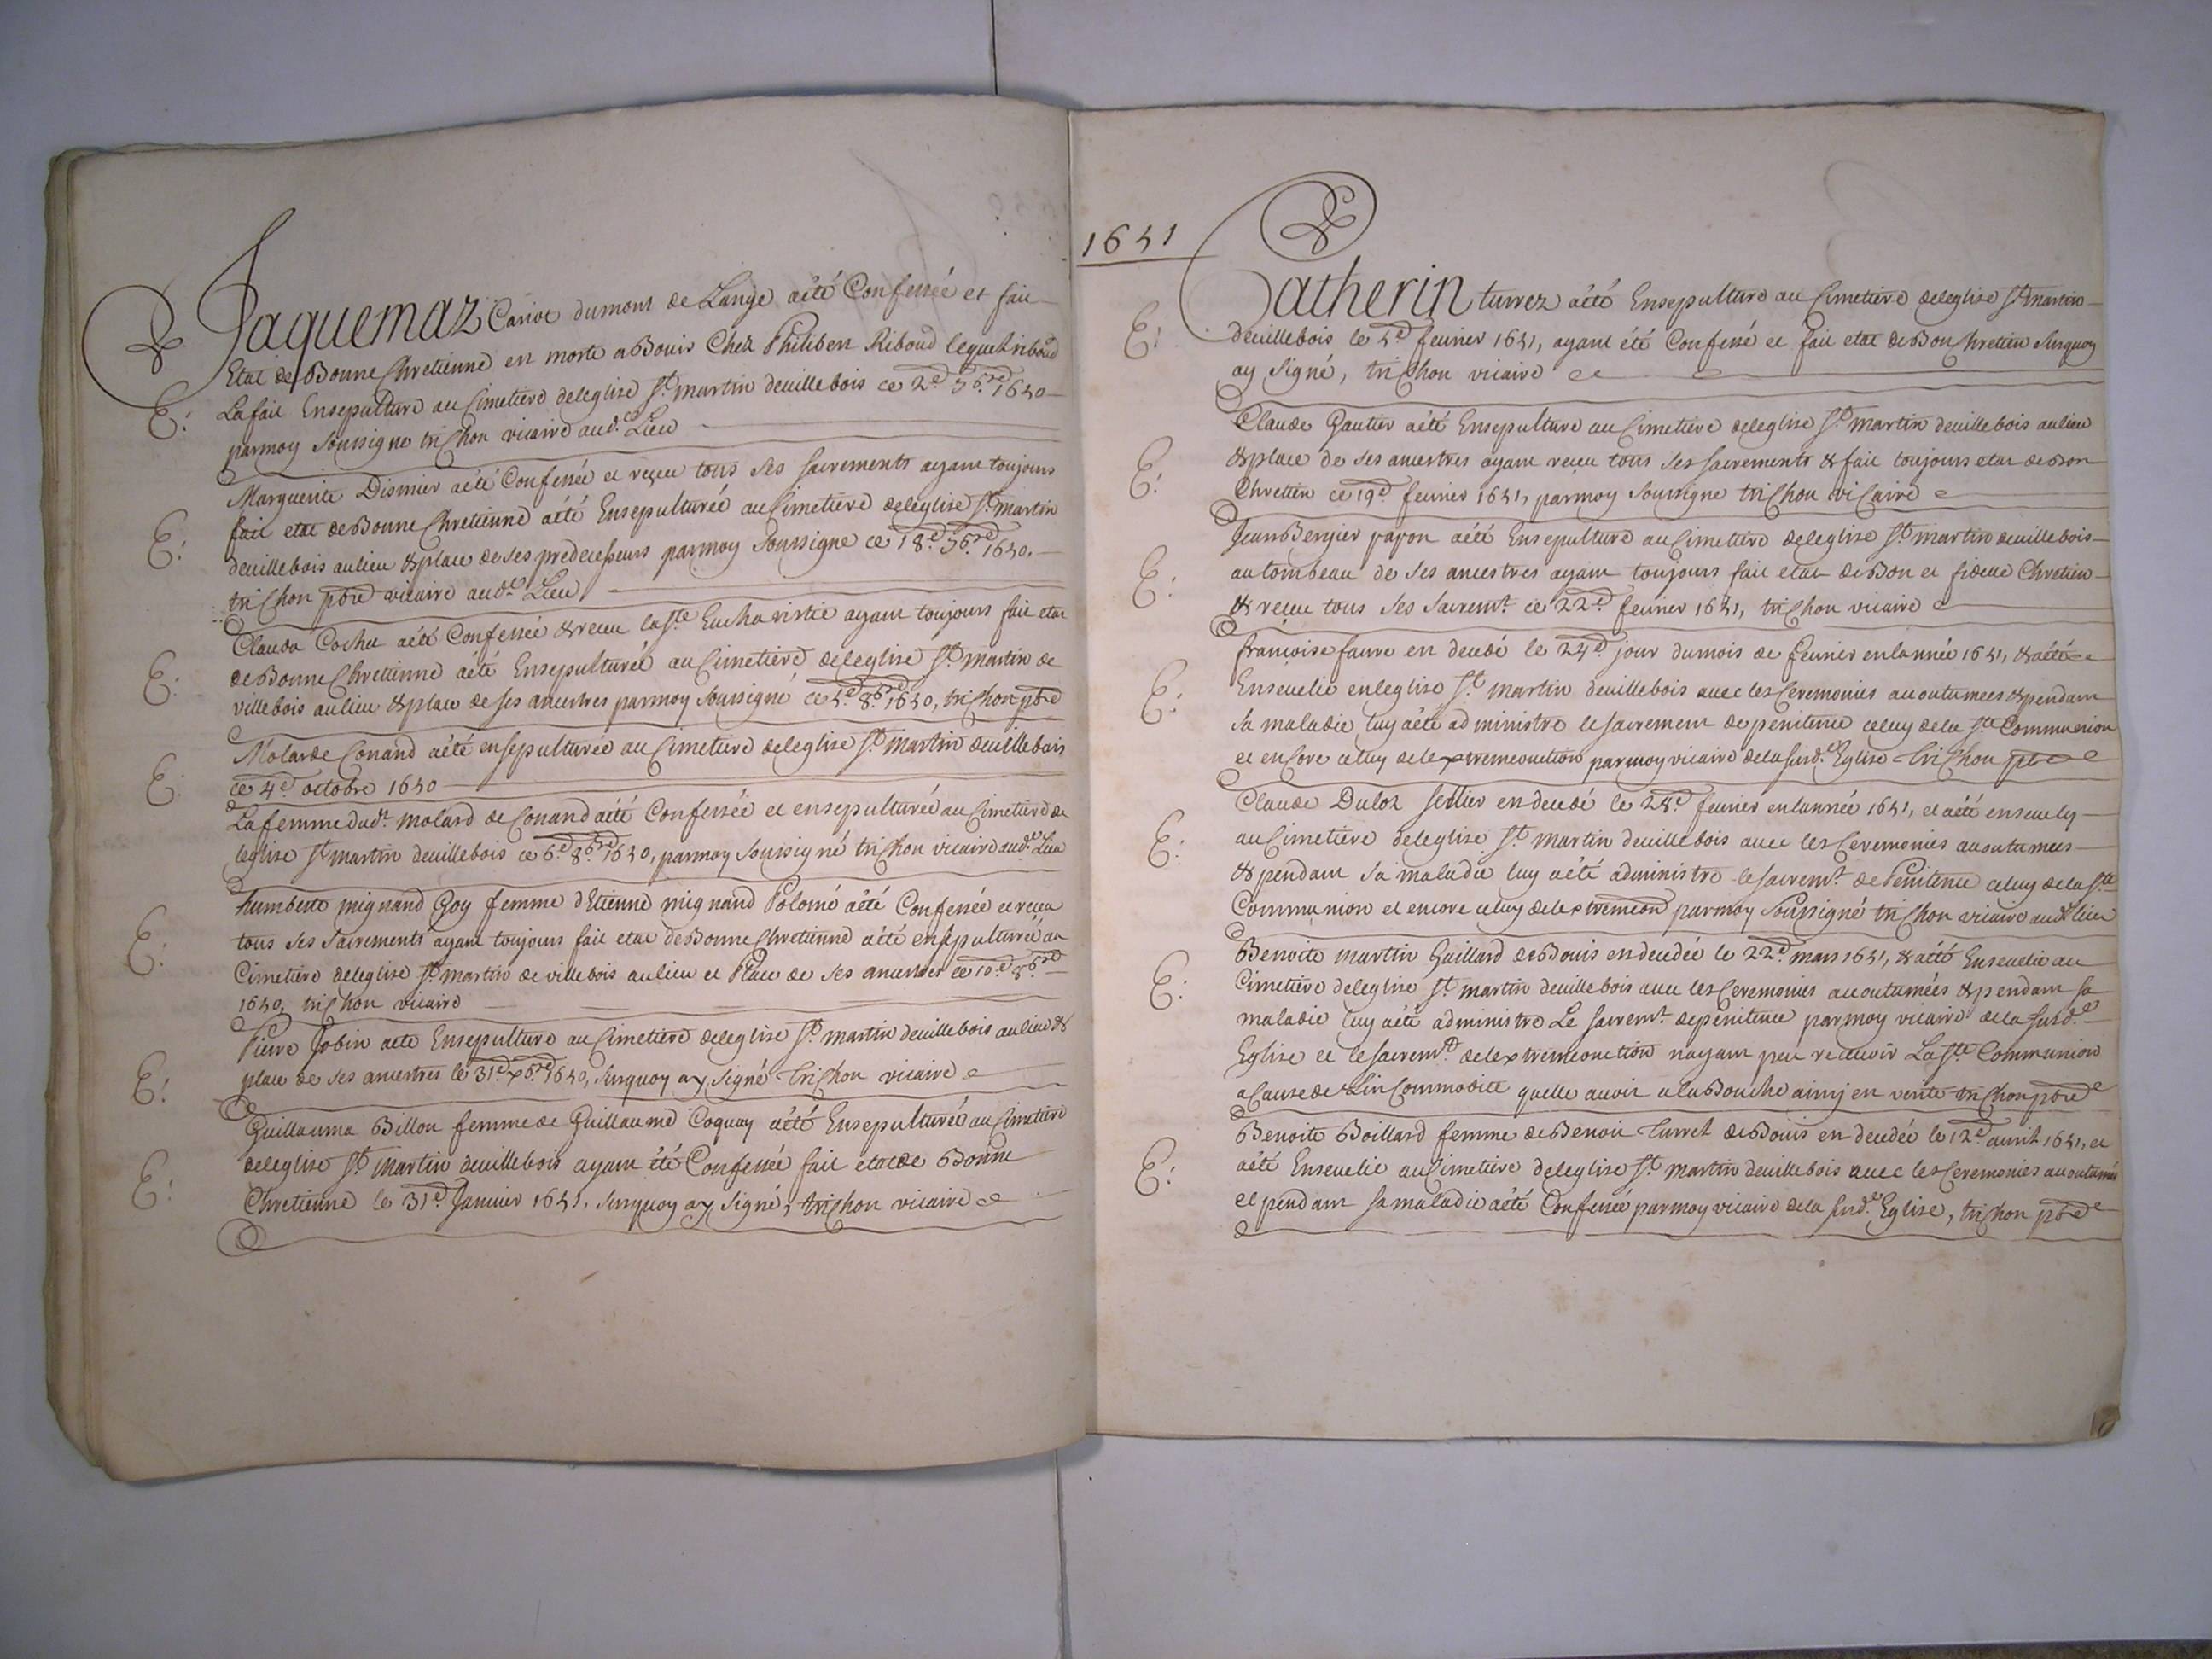 Jaquemaz Cariot dumont de Lange aété Confessée et fait
Etat de Bonne Chretienne en morte a Bouis Chez Philibert Riboud lequel riboud
E: La fait Ensepulture au Cimetiere deleglise St. martin deuillebois ce 2d 7bre 1650
parmoy Soussigne trichon vicaire aud. Lieu
Marguerite Dismier aété Confessée et reçeu tous ses sacrements ayant toujours
fait etat de Bonne Chretienne aété Ensepulturée au Cimetiere deleglise St. martin
E: deuillebois aulieu & place de ses predecesseurs parmoy Soussigne ce 18d 7bre 1650.
trichon pbre vicaire audt. Lieu
Clauda Cochet aété Confessée & receu la ste Eucharistie ayant toujours fait etat
E: de Bonne Chretienne aété Ensepulturée au Cimetiere deleglise St. martin de
villebois aulieu & place de ses ancestres parmoy Soussigné ce 5d 8bre 1650, trichon pbre
Molarde Conand aété ensepulturée au Cimetiere deleglise St. martin deuillebois
E: ce 4d octobre 1650
La femme dudt. molard de Conand aété Confessée et ensepulturée au Cimetiere de
leglise St martin deuillebois ce 6d 8bre 1650, parmoy Soussigné trichon vicaire aud. Lieu
humberte mignand Goy femme dEtienne mignand Polomé aété Confessée et receu
E: tous ses sacrements ayant toujours fait etat de Bonne Chretienne aété ensepulturée au
Cimetiere deleglise St. martin de villebois aulieu et Place de ses ancestres ce 10d 8bre
1650, trichon vicaire
Pierre Jobin aete Ensepulture au Cimetiere deleglise St. martin deuillebois aulieu &
E: place de ses ancestres le 31d xbre 1650, Surquoy ay Signé trichon vicaire
Guillauma Billon femme de Guillaume Coquay aété Ensepulturée au Cimetiere
E: deleglise St. martin deuillebois ayant été Confessée fait etat de Bonne
Chretienne le 31d Januier 1651, Surquoy ay Signé, trichon vicaire
1651
Catherin turrez aété Ensepulture au Cimetiere deleglise St. martin
E: deuillebois le 5d feurier 1651, ayant été Confessé et fait etat de Bon Chretien Surquoy
ay Signé, trichon vicaire
Claude Gautier aété Ensepulture au Cimetiere deleglise St. martin deuillebois aulieu
E: & place de ses ancestres ayant receu tous ses sacrements & fait toujours etat de Bon
Chretien ce 19d feurier 1651, parmoy Soussigne trichon vicaire
Jean Bergier papon aété Ensepulture au Cimetiere deleglise St. martin deuillebois
E: au tombeau de ses ancestres ayant toujours fait etat de Bon et fidelle Chretien
& reçeu tous ses sacremt. ce 22d feurier 1651, trichon vicaire
françoise faure en decedé le 24d jour dumois de feurier enlannée 1651, & aété
E: Enseuelie enleglise St. martin deuillebois auec les Ceremonies acoutumees & pendant
sa maladie luy aété administre le sacrement depenitence celuy dela ste Communion
et encore celuy delextremeonction parmoy vicaire dela susd. Eglise trichon pbre
Claude Duloz sertier en decedé le 28d feurier enlannée 1651, et aété enseuely
E: au Cimetiere deleglise St. martin deuillebois auec les Ceremonies acoutumees
& pendant sa maladie luy aété administre le sacremt. de Penitence celuy dela ste
Communion et encore celuy delextremeon parmoy Soussigné trichon vicaire audt lieu
Benoite martin Guillard de Bouis en decedée le 22d mars 1651, & aété Enseuelie au
E: Cimetiere deleglise St. martin deuillebois auec les Ceremonies acoutumées & pendant sa
maladie luy aété administre Le sacremt. depénitence parmoy vicaire dela susd.
Eglise et le sacremt. delextremeonction nayant peu recevoir La ste Communion
a Cause de LinCommodité quelle auoit a la Bouche ainsj en verité trichon pbre
Benoite Boillard femme de Benoit turret de Bouis en decedée le 12d auril 1651, et
E: aété Enseuelie au Cimetiere deleglise St. martin deuillebois auec les Ceremonies acoutumées
et pendant sa maladie aété Confessée parmoy vicaire dela susd. Eglise, trichon pbre